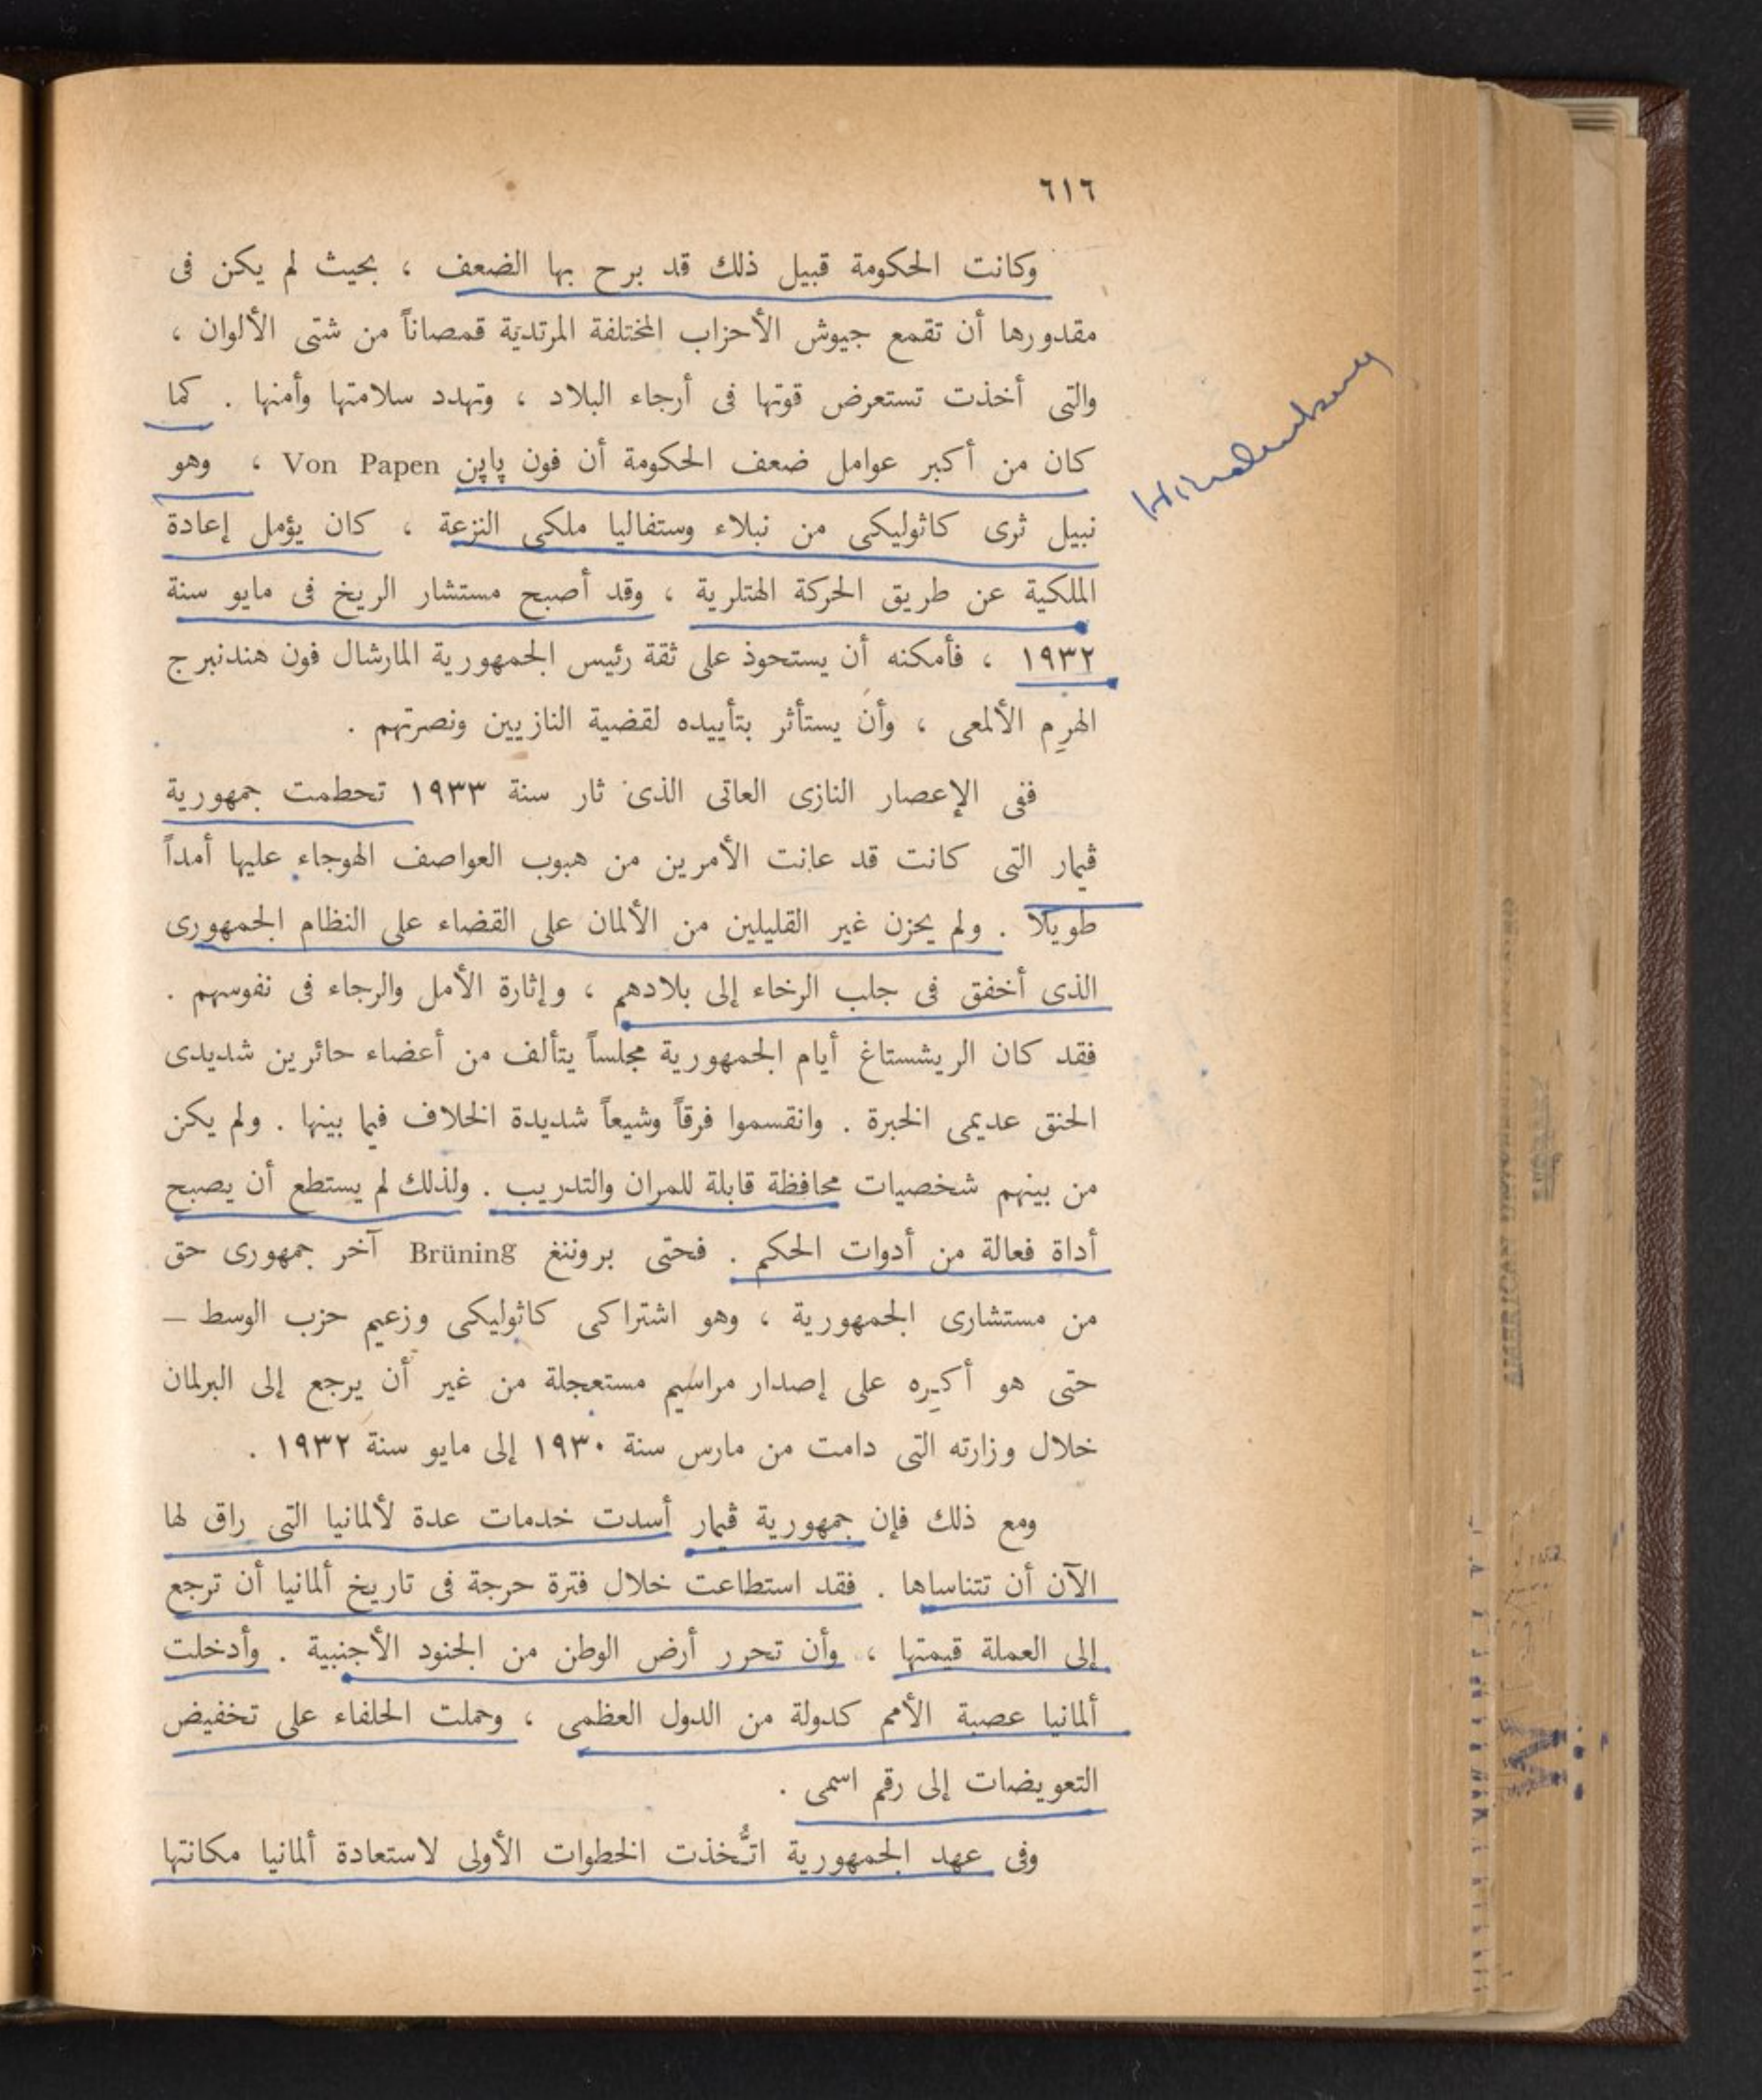 ٦١٦
وكانت الحكومة قبيل ذلك قد برح بها الضعف ، بحيث لم يكن فى
مقدورها أن تقمع جيوش الأحزاب المختلفة المرتدية قمصاناً من شتى الألوان ،
والتى أخذت تستعرض قوتها فى أرجاء البلاد ، وتهدد سلامتها وأمنها . كما
كان من أكبر عوامل ضعف الحكومة أن فون پاپن Von Papen ، وهو
نبيل ثرى كاثوليكى من نبلاء وستفاليا ملكى النزعة ، كان يؤمل إعادة
الملكية عن طريق الحركة الهتلرية ، وقد أصبح مستشار الريخ فى مايو سنة
١٩٣٢ ، فأمكنه أن يستحوذ على ثقة رئيس الجمهورية المارشال فون هندنبرج
الهرِم الألمعى ، وأن يستأثر بتأييده لقضية النازيين ونصرتهم .
ففى الإعصار النازى العاتى الذى ثار سنة ١٩٣٣ تحطمت جمهورية
ڤيمار التى كانت قد عانت الأمرين من هبوب العواصف الهوجاء عليها أمداً
طويلا . ولم يحزن غير القليلين من الألمان على القضاء على النظام الجمهورى
الذى أخفق فى جلب الرخاء إلى بلادهم ، وإثارة الأمل والرجاء فى نفوسهم .
فقد كان الريشستاغ أيام الجمهورية مجلساً يتألف من أعضاء حائرين شديدى
الحنق عديمى الخبرة . وانقسموا فرقاً وشيعاً شديدة الخلاف فيما بينها . ولم يكن
من بينهم شخصيات محافظة قابلة للمران والتدريب . ولذلك لم يستطع أن يصبح
أداة فعالة من أدوات الحكم . فحتى بروننغ Brüning آخر جمهورى حق
من مستشارى الجمهورية ، وهو اشتراكى كاثوليكى وزعيم حزب الوسط –
حتى هو أكرِه على إصدار مراسيم مستعجلة من غير أن يرجع إلى البرلمان
خلال وزارته التى دامت من مارس سنة ١٩٣٠ إلى مايو سنة ١٩٣٢ .
ومع ذلك فإن جمهورية ڤيمار أسدت خدمات عدة لألمانيا التى راق لها
الآن أن تتناساها . فقد استطاعت خلال فترة حرجة فى تاريخ ألمانيا أن ترجع
إلى العملة قيمتها ، وأن تحرر أرض الوطن من الجنود الأجنبية . وأدخلت
ألمانيا عصبة الأمم كدولة من الدول العظمى ، وحملت الحلفاء على تخفيض
التعويضات إلى رقم اسمى .
وفى عهد الجمهورية اتُّخذت الخطوات الأولى لاستعادة ألمانيا مكانتها
Hindenburg